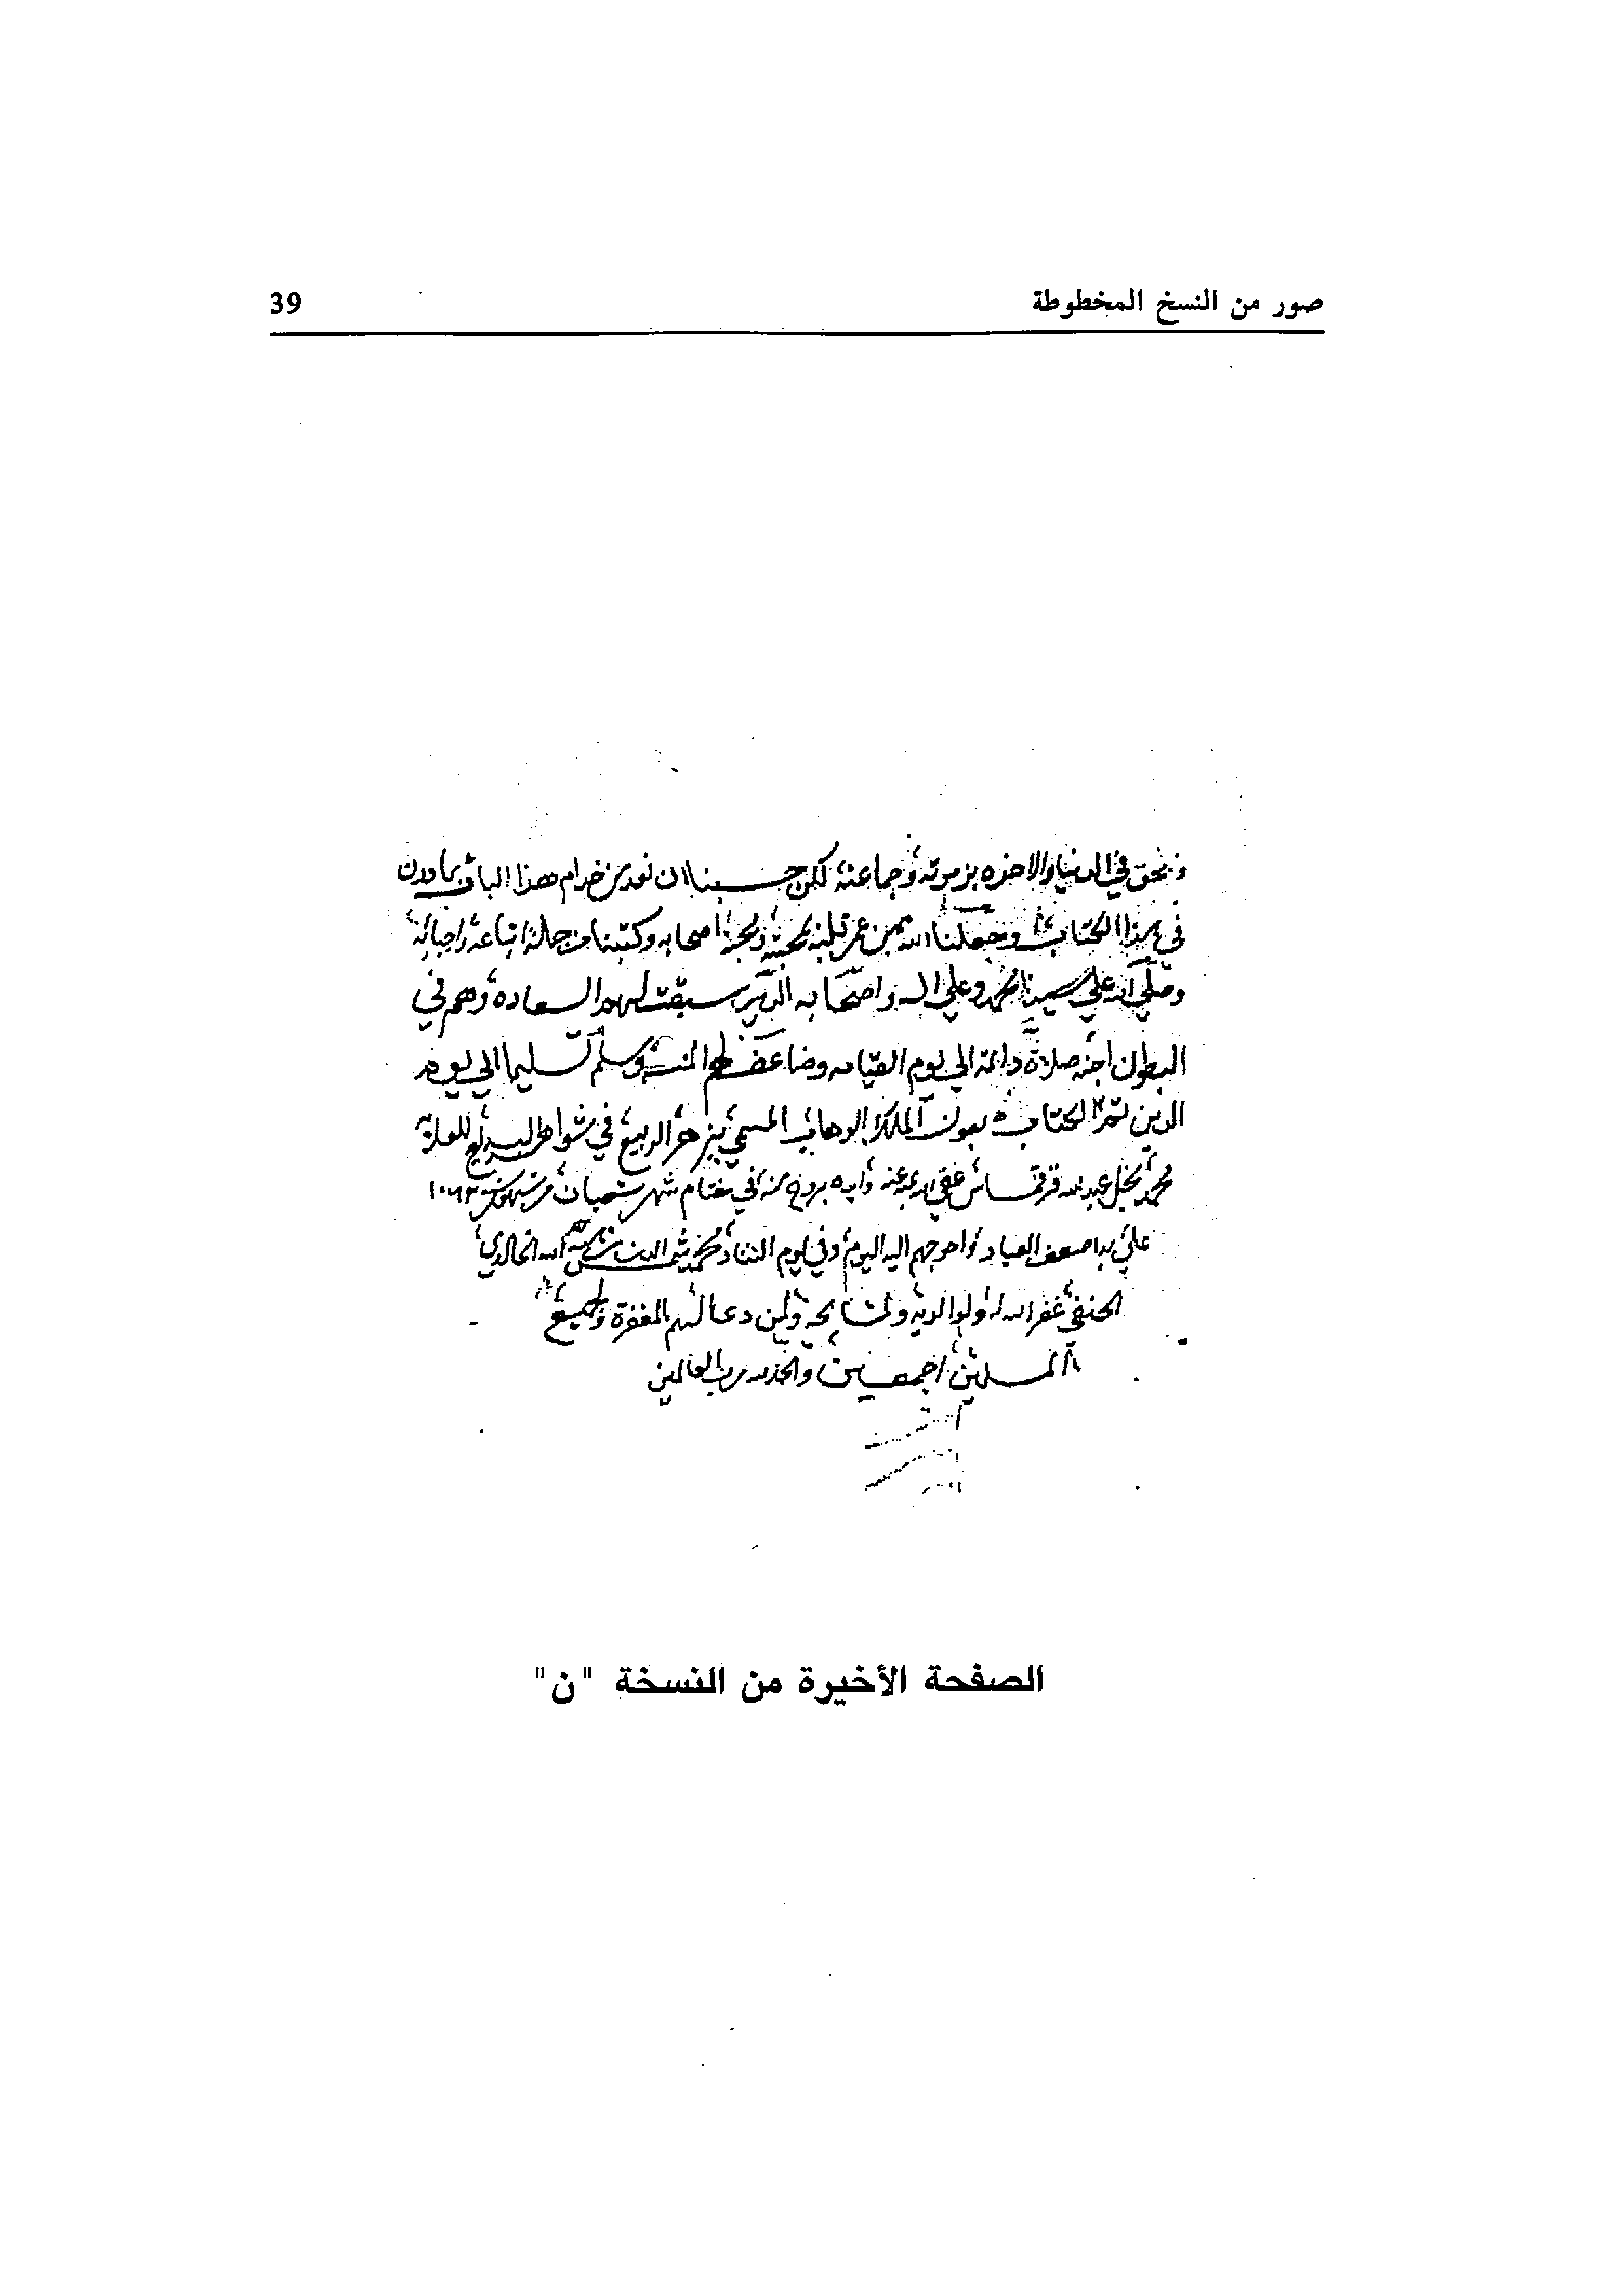 صور من النسخ المخطوطة 39
في الدنيا والاخره بزمرته وجماعته لكن حسبنا ان نعد من خدام هذا الباب بما دون
في هذا الكتاب وجعلنا الله ممن عمر قلبه بمحبته ومحبة اصحابه وكتبنا من جملة اتباعه واحبائه
وصلي الله علي سيدنا محمد وعلي اله واصحابه الذين سبقت لهم السعاده وهم في
البطون اجنه صلاة دائمة الي يوم القيامه وسلم تسليما الي يوم
الدين تم الكتاب بعون الملك الوهاب المسمي بزهر الربيع في شواهد البديع للعلامه
محمد نجل عبد الله قرقماس عفي الله عنه وايده بروح منه في ختام شهر شعبان من شهور سنة ١٠٦٣
علي يد اضعف العباد واحوجهم اليه اليوم وفي يوم التناد محمد شمس الدين الخالدي
الحنفي غفر الله له ولوالديه ولمشايخه ولمن دعا لهم بالمغفرة ولجميع
المسلمين اجمعين والحمد لله رب العالمين
الصفحة الأخيرة من النسخة "ن"